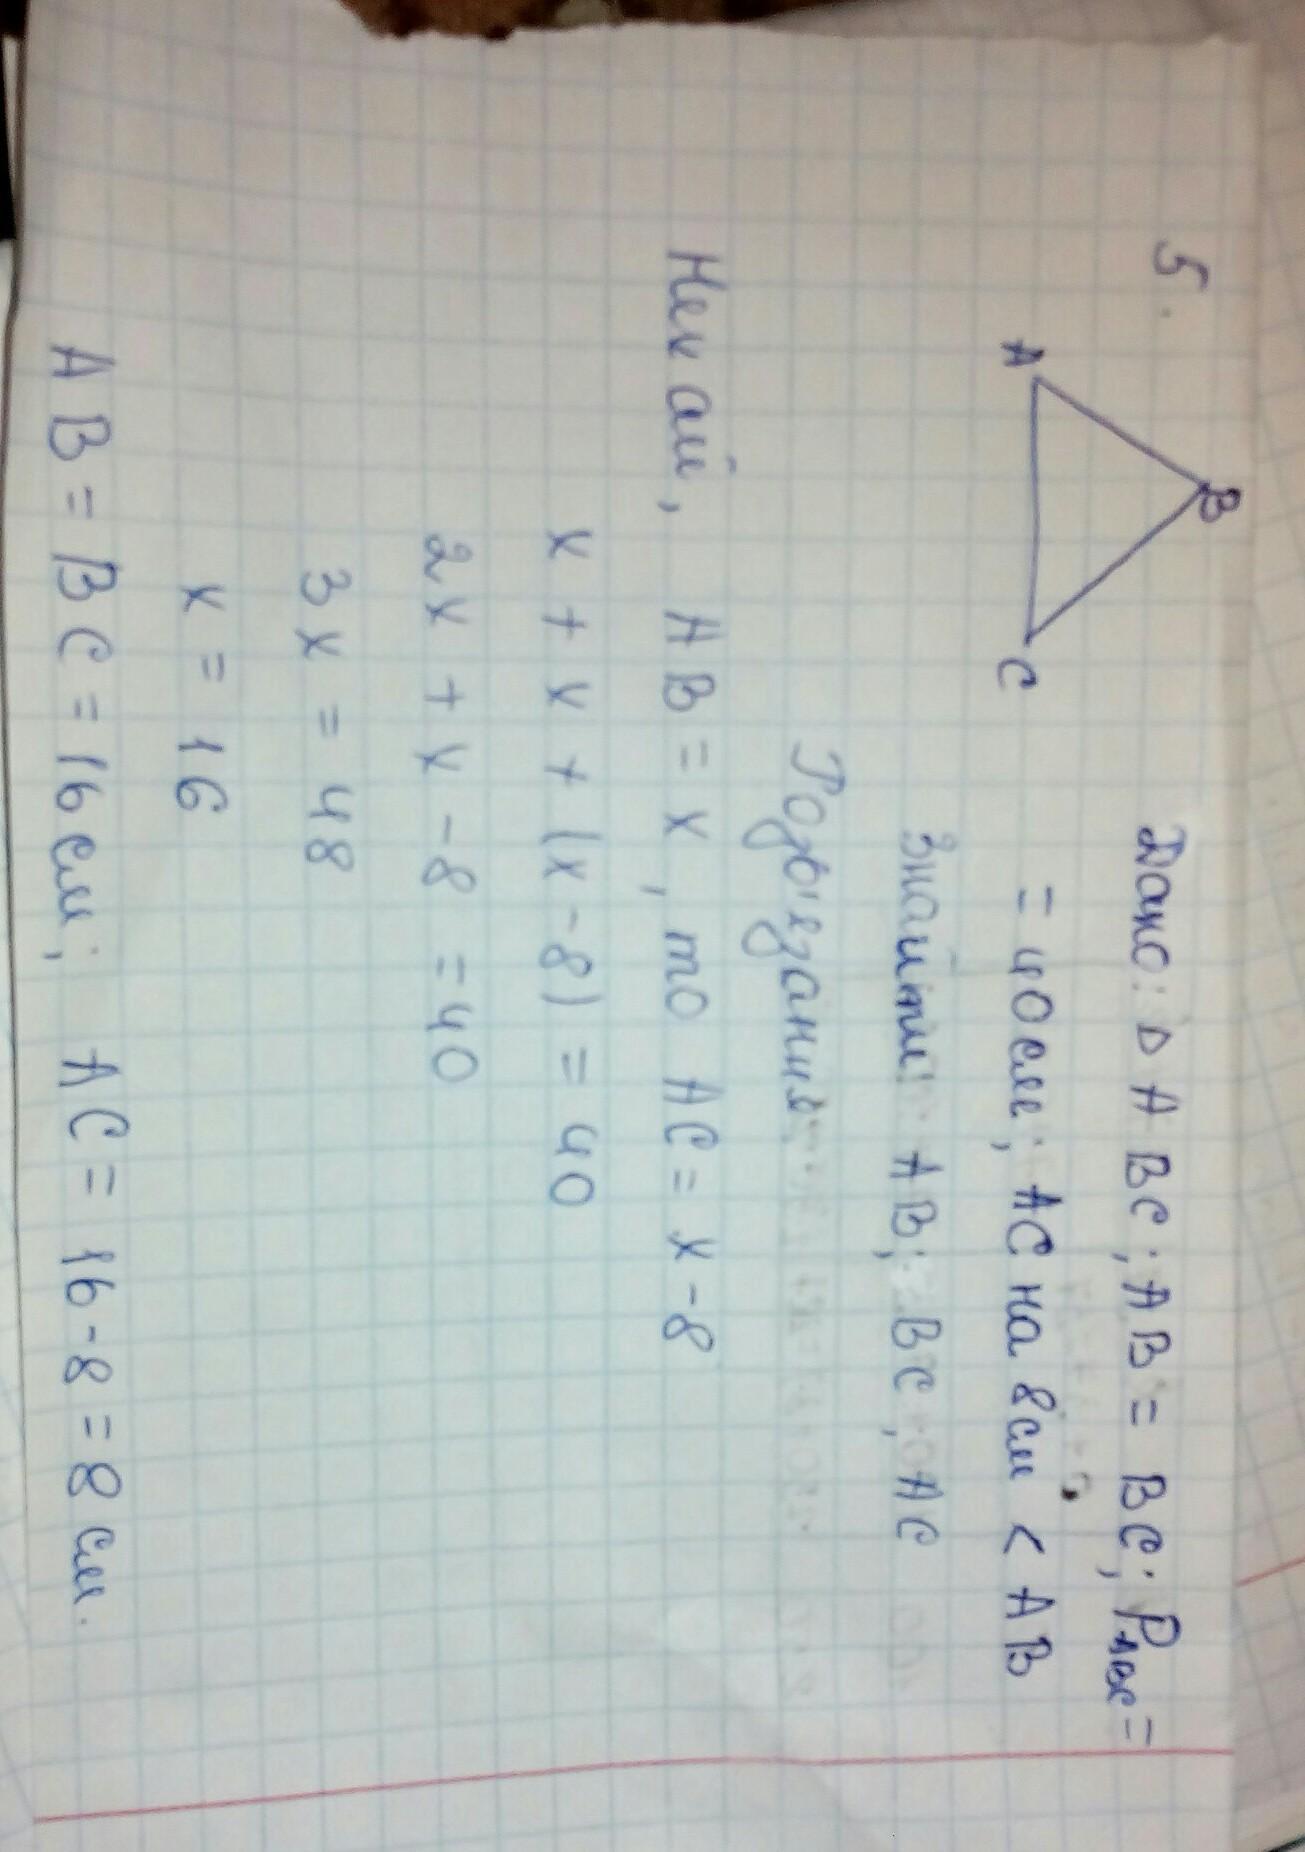 5.
B
A
C
Дано: △ ABC; AB = BC; P ABC =
= 40 см; AC на 8 см < AB
Знайти: AB; BC, AC
Розв'язання
Нехай, AB = x, то AC = x - 8
x + x + (x - 8) = 40
2x + x - 8 = 40
3x = 48
x = 16
AB = BC = 16 см; AC = 16 - 8 = 8 см.